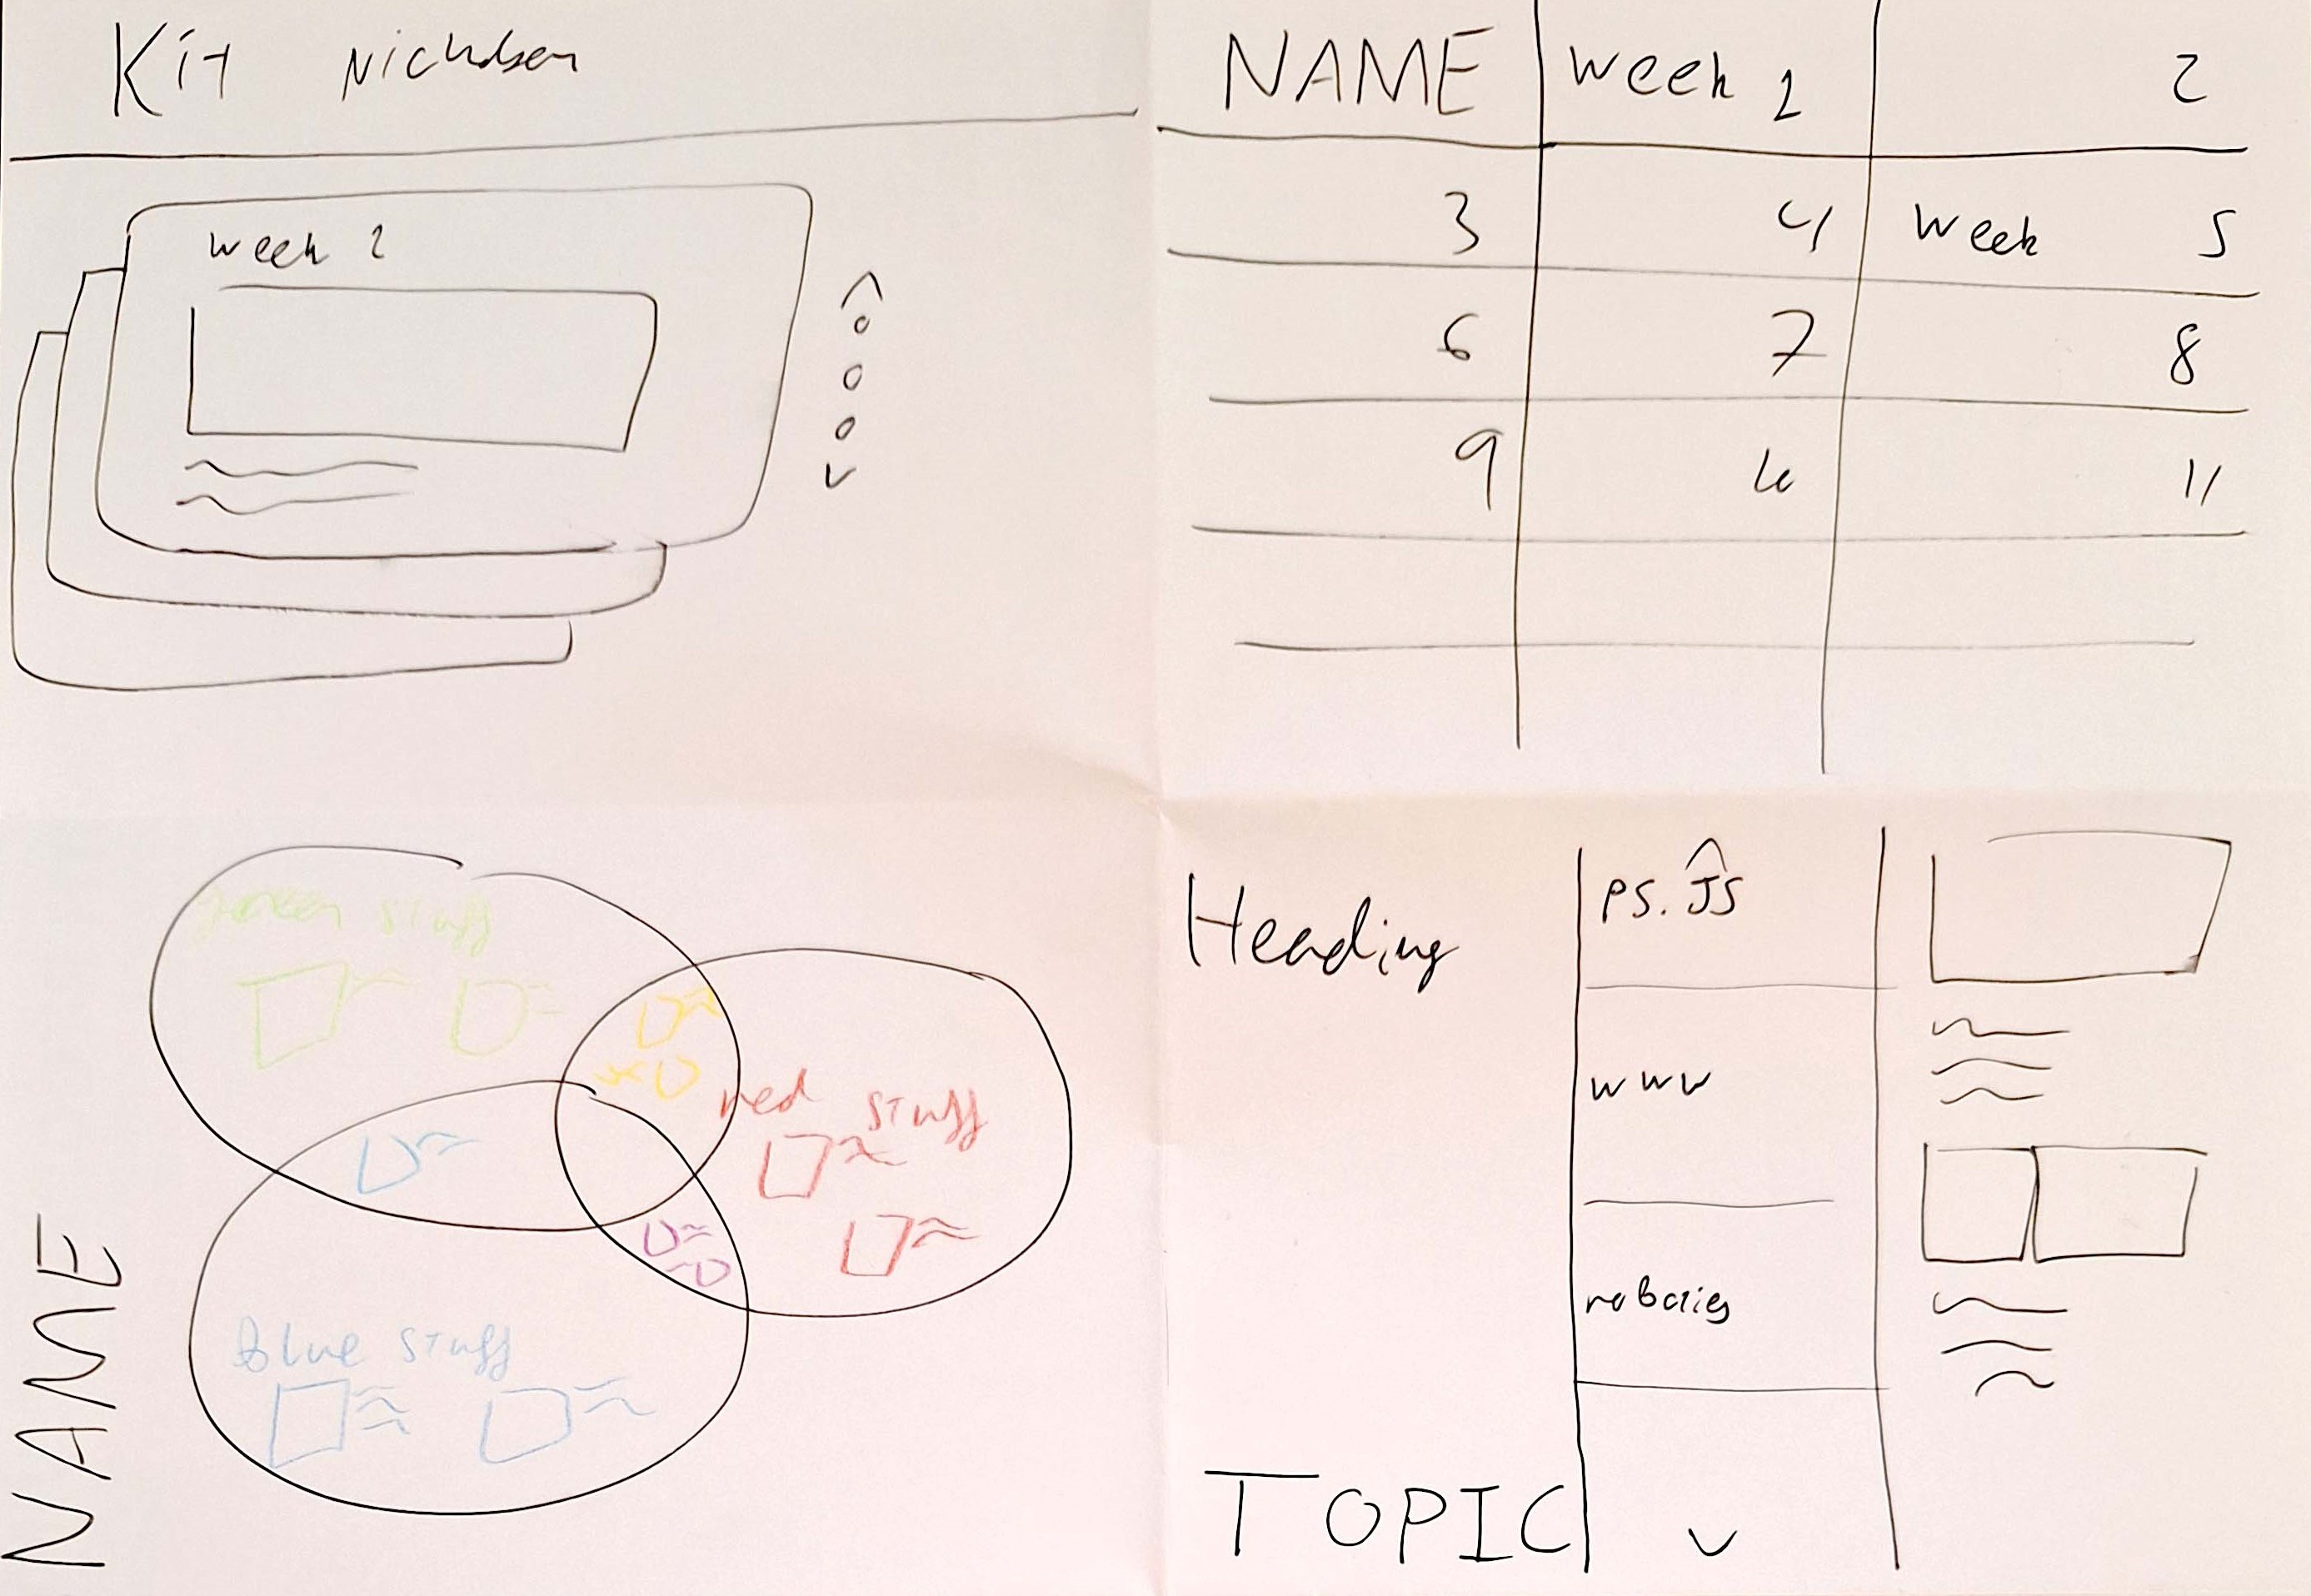 Kit Nicholson
week 2
NAME week 1 2
3 4 week 5
6 7 8
9 10 11
green stuff
red stuff
Blue stuff
NAME
Heading
P5.JS
www
TOPIC